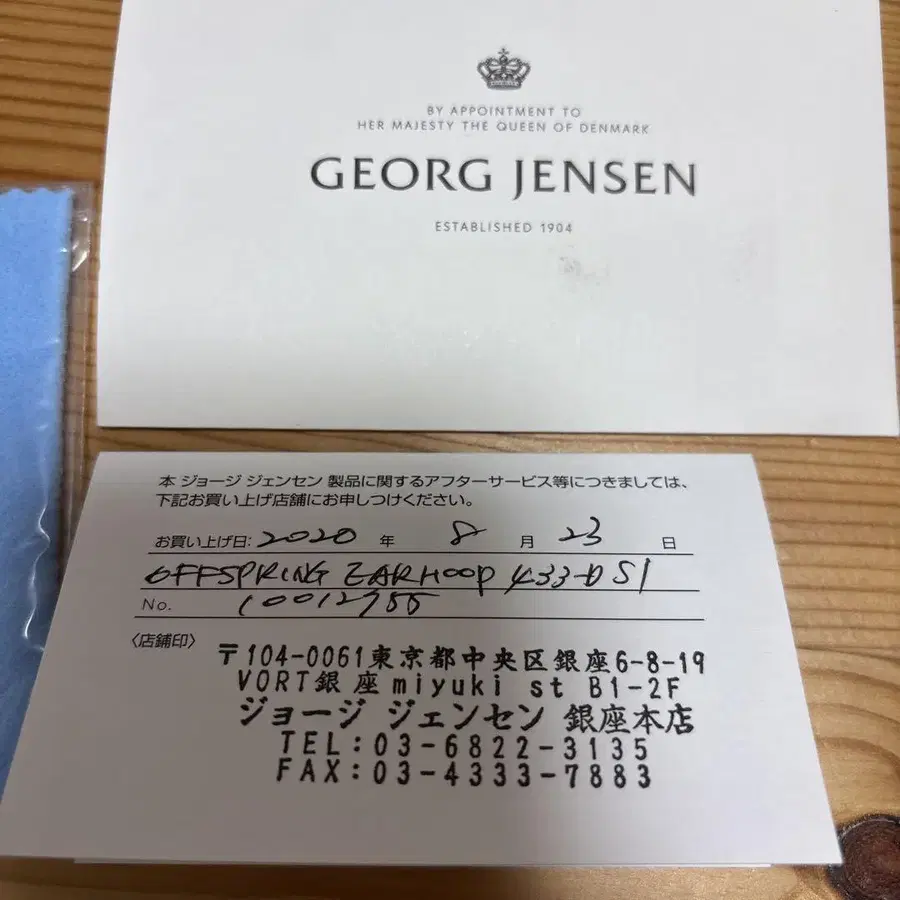 BY APPOINTMENT TO
HER MAJESTY THE QUEEN OF DENMARK
GEORG JENSEN
ESTABLISHED 1904
本 ジョージ ジェンセン 製品に関するアフターサービス等につきましては、
下記お買い上げ店舗にお申しつけください。
お買い上げ日: 2020 年 8 月 23 日
OFFSPRING EARHOOP 433-D S1
No. 10012755
〈店舗印〉
〒104-0061東京都中央区銀座6-8-19
VORT銀座miyuki st B1-2F
ジョージ ジェンセン 銀座本店
TEL:03-6822-3135
FAX:03-4333-7883